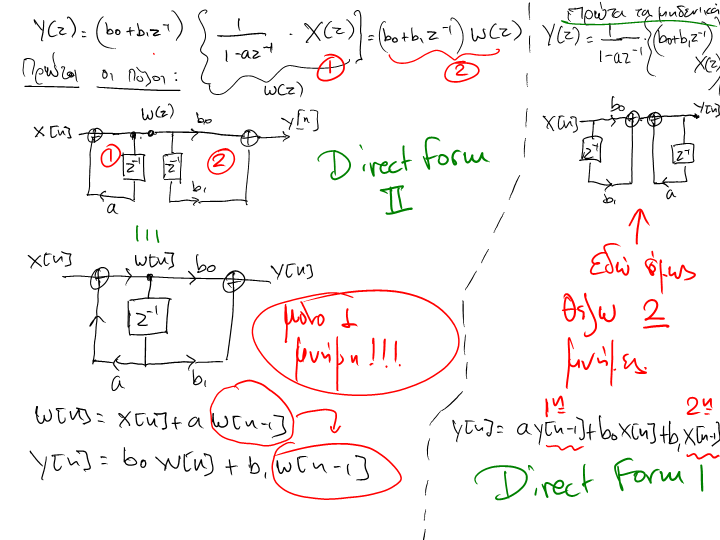 Y(z) = (b0+b1z⁻¹) { 1/(1-az⁻¹) · X(z) } = (b0+b1z⁻¹) W(z)
① ②
W(z)
Πρώτα οι πόλοι:
W(z) b0
X[n] y[n]
① z⁻¹ z⁻¹ ②
a b1
Direct Form
II
X[n] W[n] b0 Y[n]
z⁻¹
a b1
μόνο 1
μνήμη!!!
W[n] = X[n] + a W[n-1]
Y[n] = b0 W[n] + b1 W[n-1]
Πρώτα τα μηδενικά
Y(z) = 1/(1-az⁻¹) {(b0+b1z⁻¹)
X(z)
b0 Y[n]
X[n]
z⁻¹ z⁻¹
b1 a
Εδώ όμως
θέλω 2
μνήμες
1η 2η
y[n] = a y[n-1] + b0 X[n] + b1 X[n-1]
Direct Form I